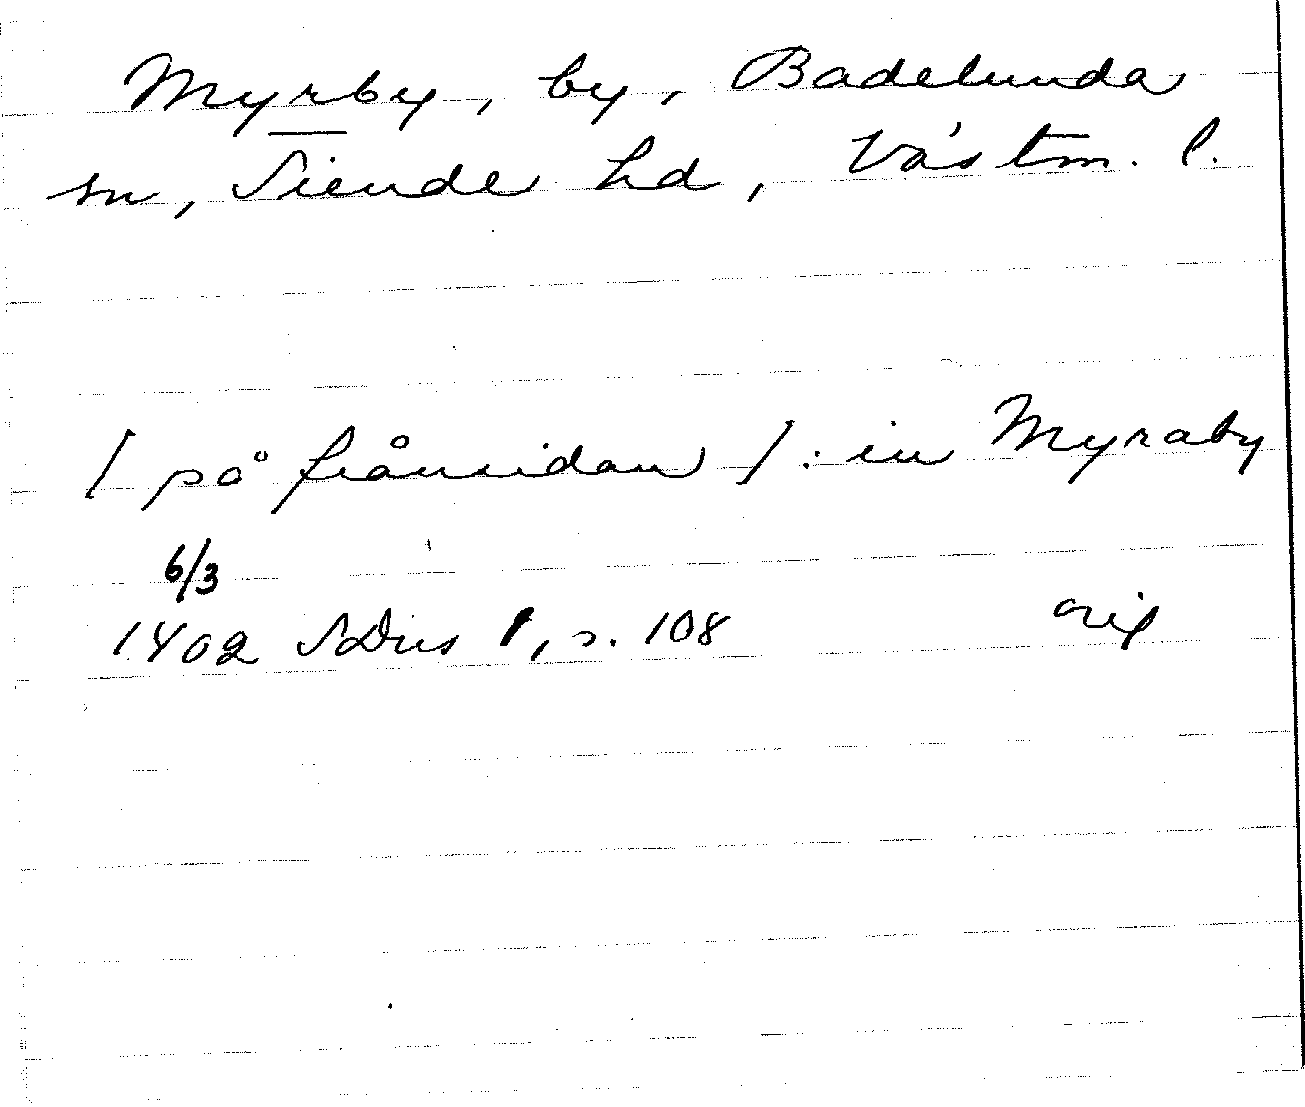 Myrby, by, Badelunda
sn, Siende hd, Västm. l.
/ på frånsidan / : in Myraby
6/3
1402 SDns 1, s. 108 orig